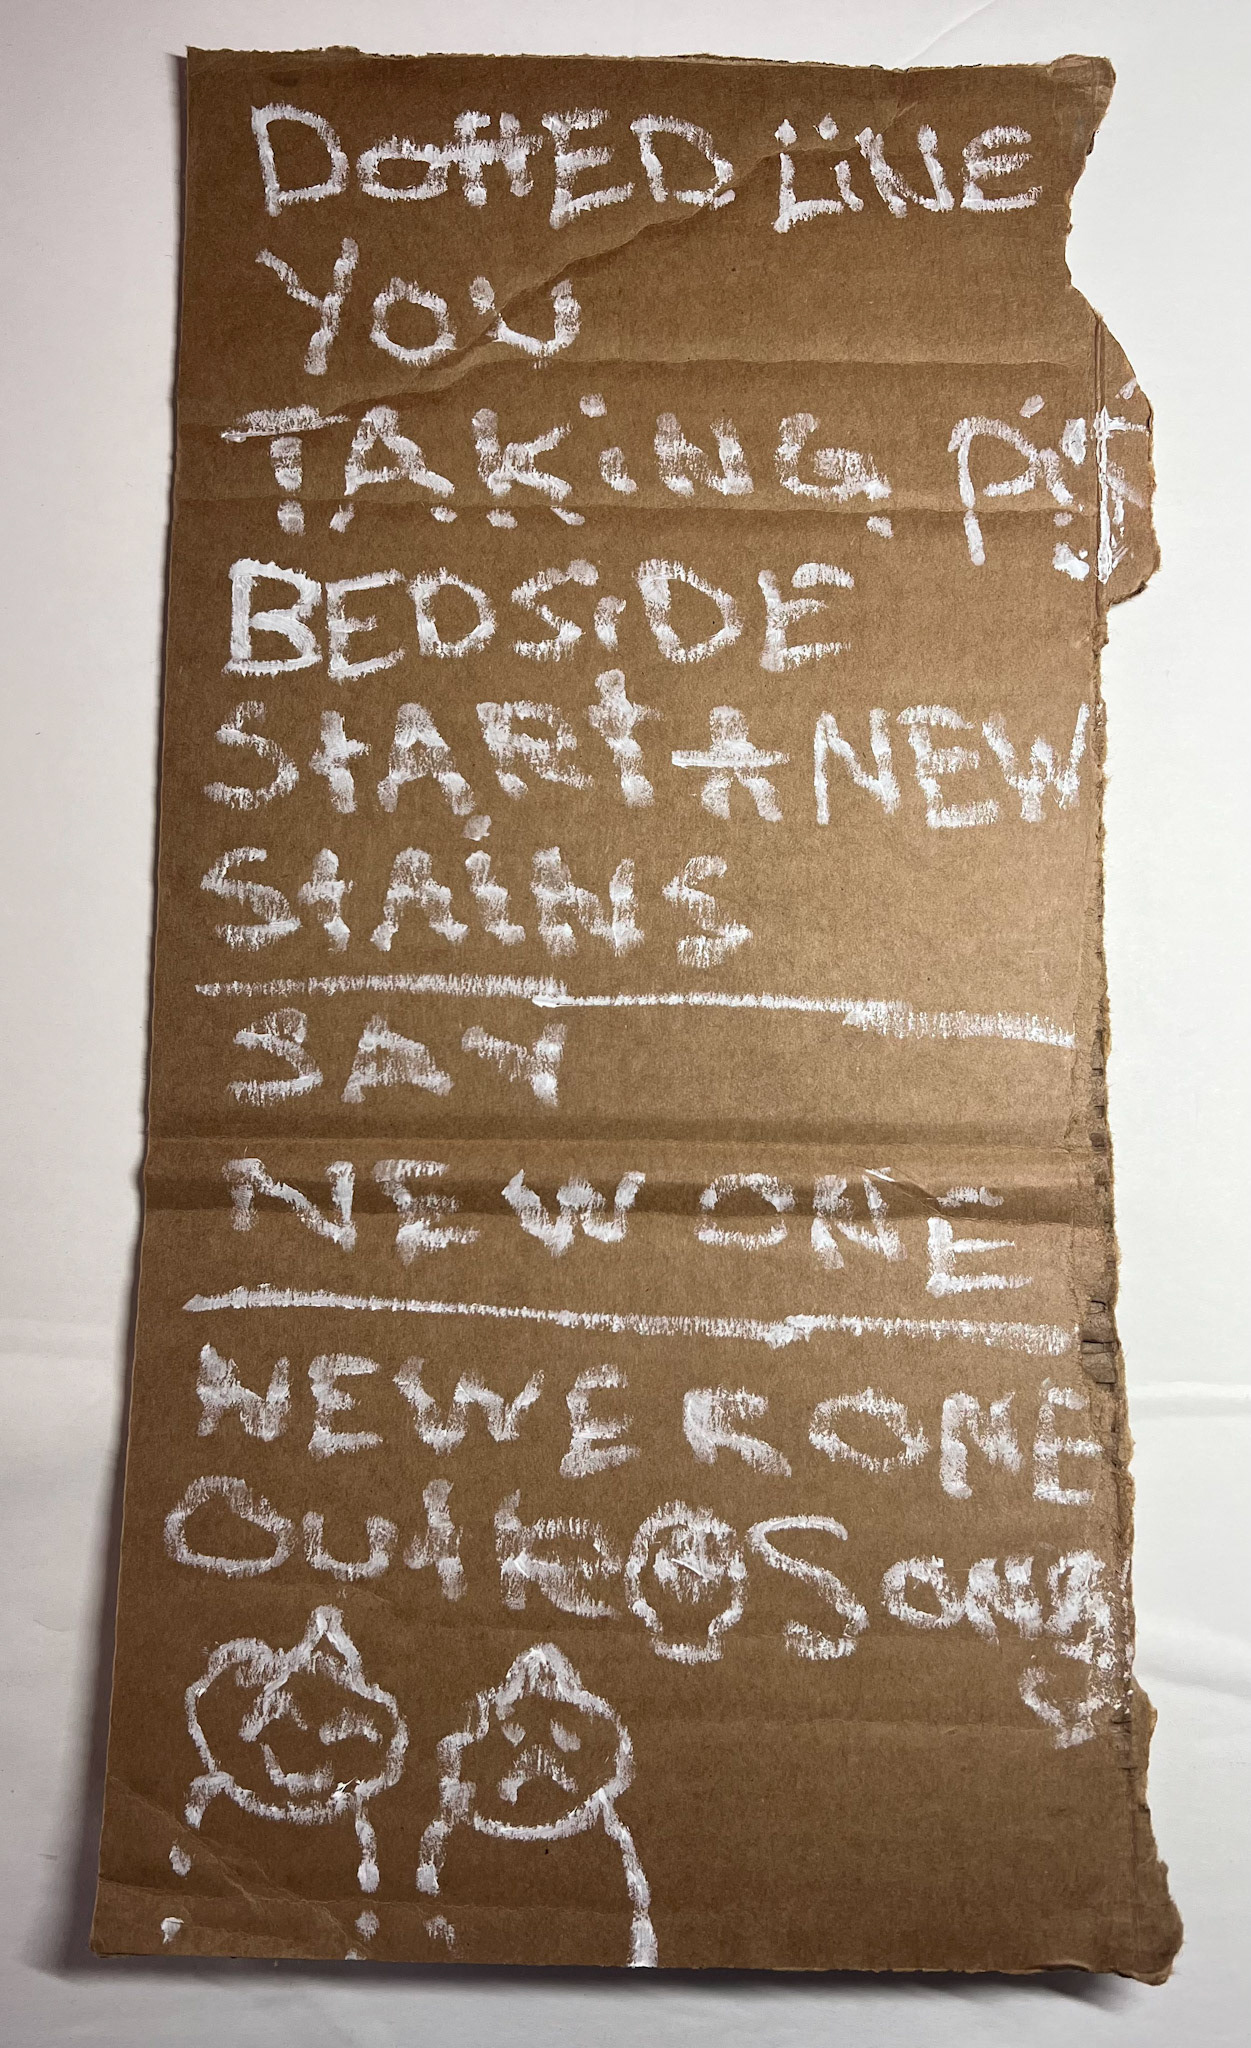 DottED LiNE
YOU
TAKiNG Pit
BEDSiDE
StARt ★ NEW
StAiNS
SAY
NEW ONE
NEWER ONE
OutRO SONG